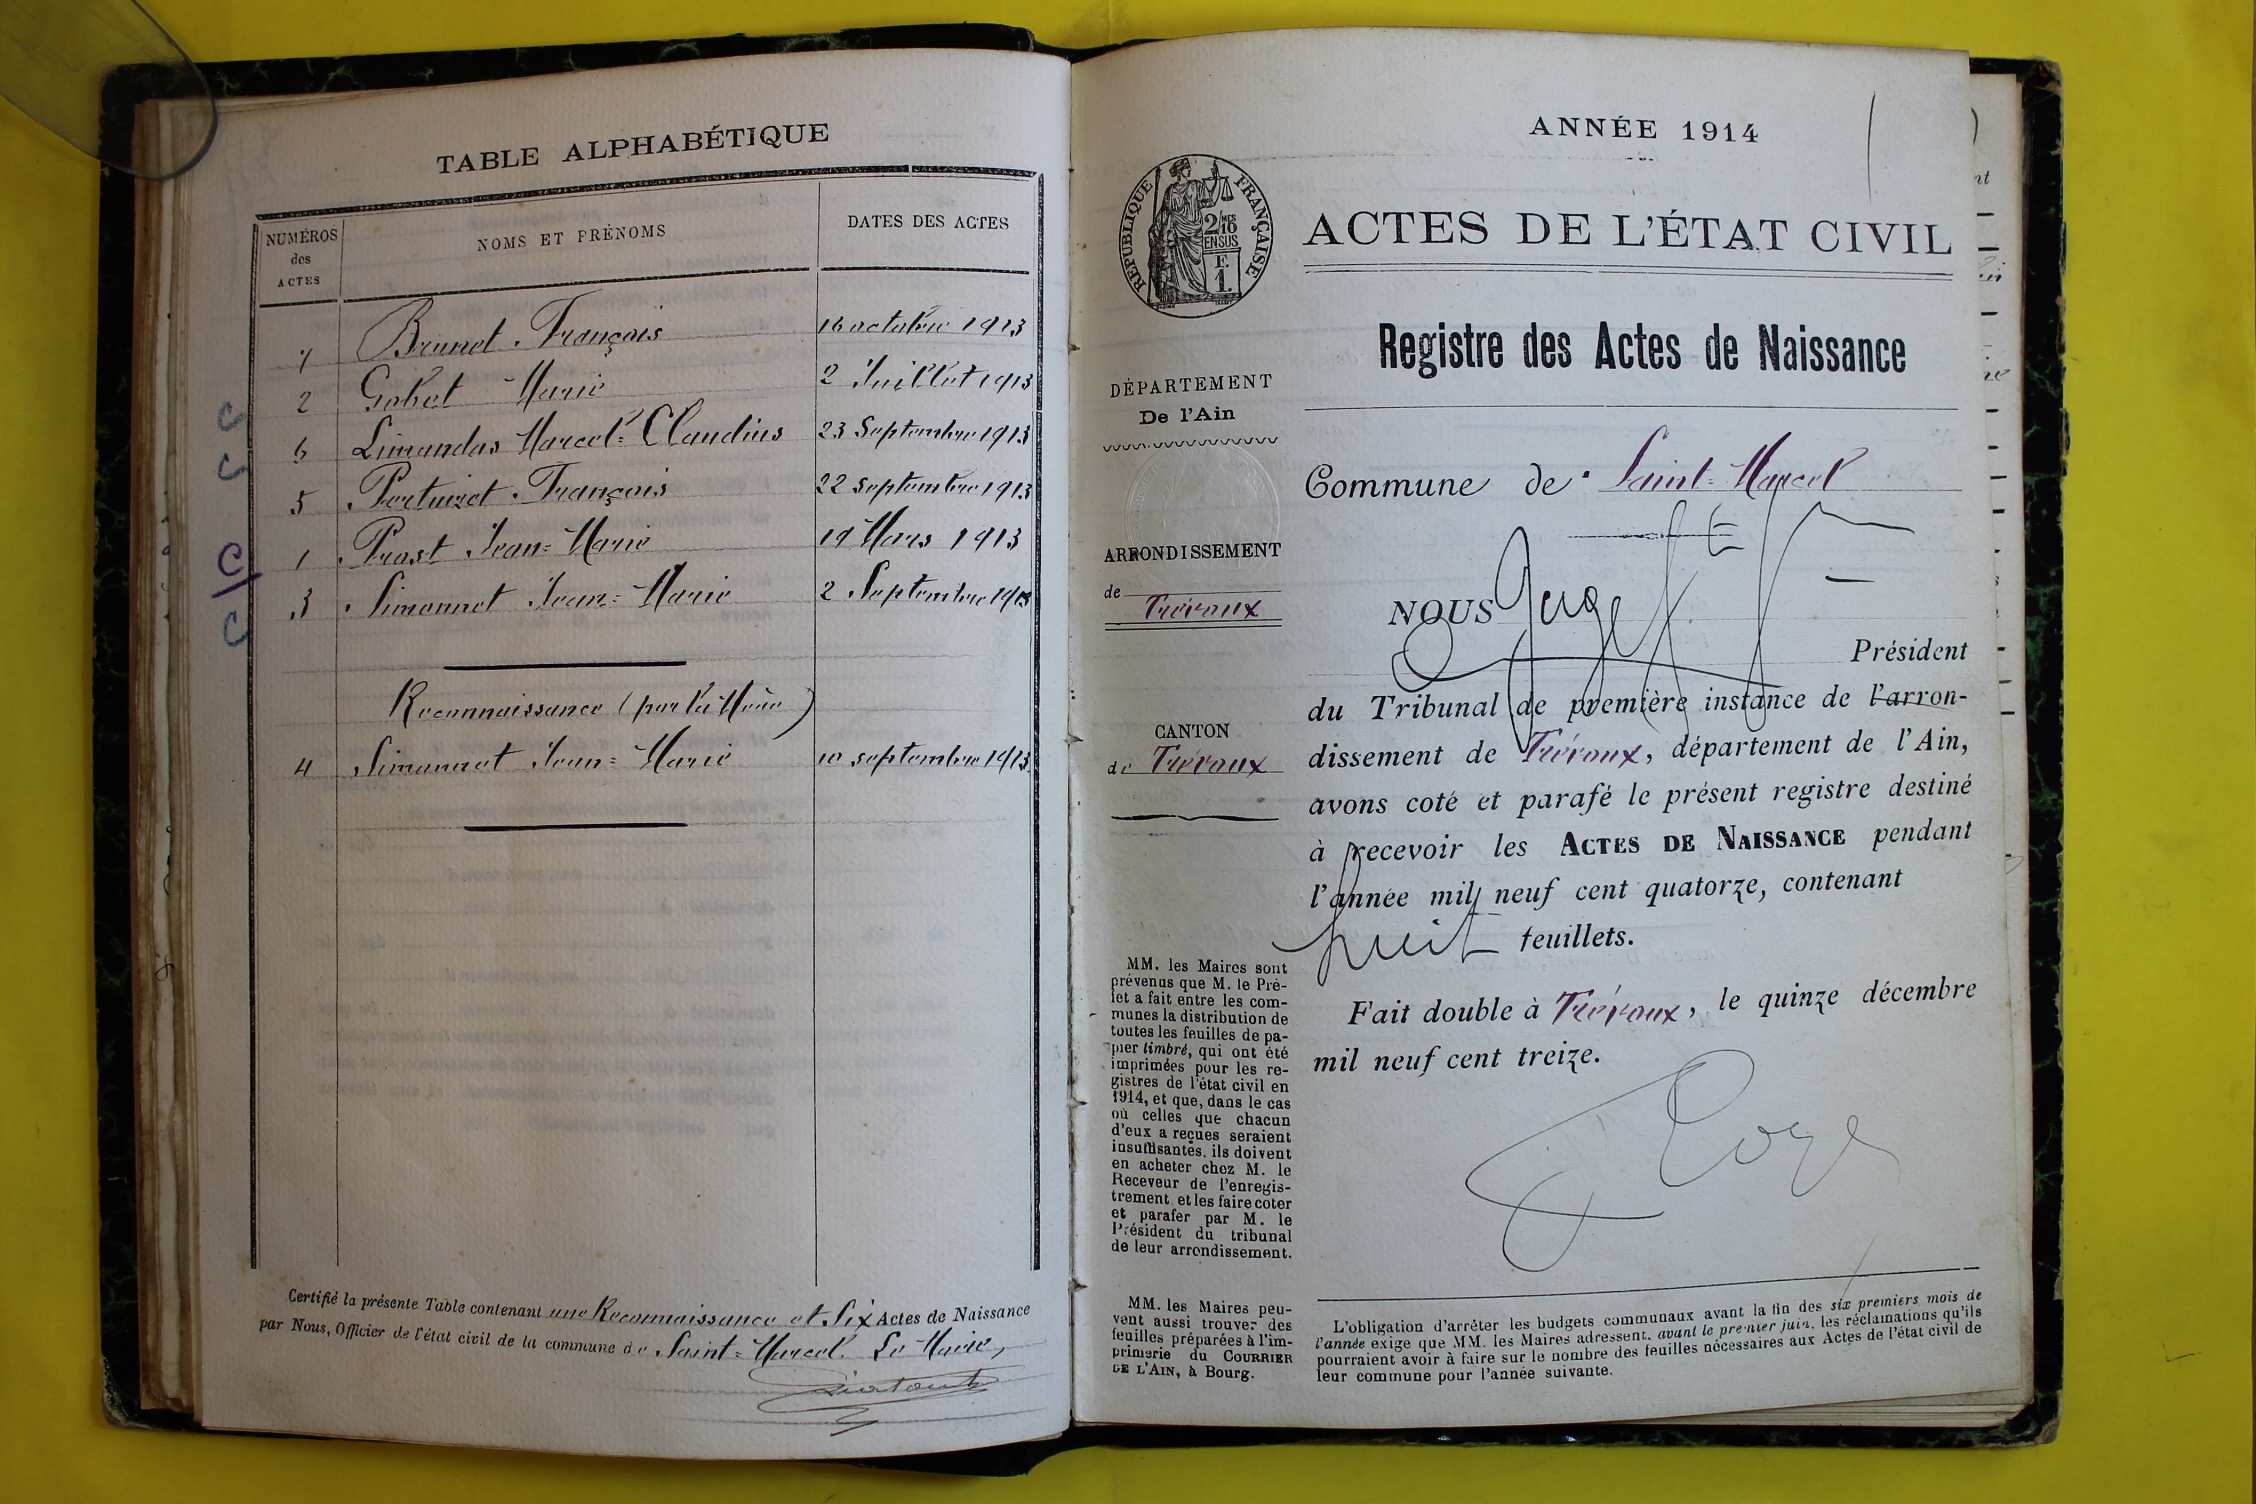 TABLE ALPHABÉTIQUE
NUMÉROS des ACTES
NOMS ET PRÉNOMS
DATES DES ACTES
7 Brunet François 16 octobre 1913
2 Gobet Marie 2 Juillet 1913
6 Limandas Marcel=Claudius 23 Septembre 1913
5 Pertuizet François 22 septembre 1913
1 Prost Jean=Marie 19 Mars 1913
3 Simonnet Jean=Marie 2 Septembre 1913
Reconnaissance (par la Mère)
4 Simonnet Jean=Marie 10 septembre 1913
Certifié la présente Table contenant une Reconnaissance et Six Actes de Naissance
par Nous, Officier de l'état civil de la commune de Saint=Marcel. Le Maire,
ANNÉE 1914
RÉPUBLIQUE FRANÇAISE
2/10 MES
EN SUS
F.
1.
ACTES DE L'ÉTAT CIVIL
Registre des Actes de Naissance
DÉPARTEMENT
De l'Ain
ARRONDISSEMENT
de
Trévoux
CANTON
de Trévoux
MM. les Maires sont
prévenus que M. le Pré-
fet a fait entre les com-
munes la distribution de
toutes les feuilles de pa-
pier timbré, qui ont été
imprimées pour les re-
gistres de l'état civil en
1914, et que, dans le cas
où celles que chacun
d'eux a reçues seraient
insuffisantes, ils doivent
en acheter chez M. le
Receveur de l'enregis-
trement et les faire coter
et parafer par M. le
Président du tribunal
de leur arrondissement.
MM. les Maires peu-
vent aussi trouver des
feuilles préparées à l'im-
primerie du COURRIER
DE L'AIN, à Bourg.
Commune de Saint=Marcel
NOUS Juge
Président
du Tribunal de première instance de l'arron-
dissement de Trévoux, département de l'Ain,
avons coté et parafé le présent registre destiné
à recevoir les ACTES DE NAISSANCE pendant
l'année mil neuf cent quatorze, contenant
huit feuillets.
Fait double à Trévoux, le quinze décembre
mil neuf cent treize.
L'obligation d'arrêter les budgets communaux avant la fin des six premiers mois de
l'année exige que MM. les Maires adressent, avant le premier juin, les réclamations qu'ils
pourraient avoir à faire sur le nombre des feuilles nécessaires aux Actes de l'état civil de
leur commune pour l'année suivante.